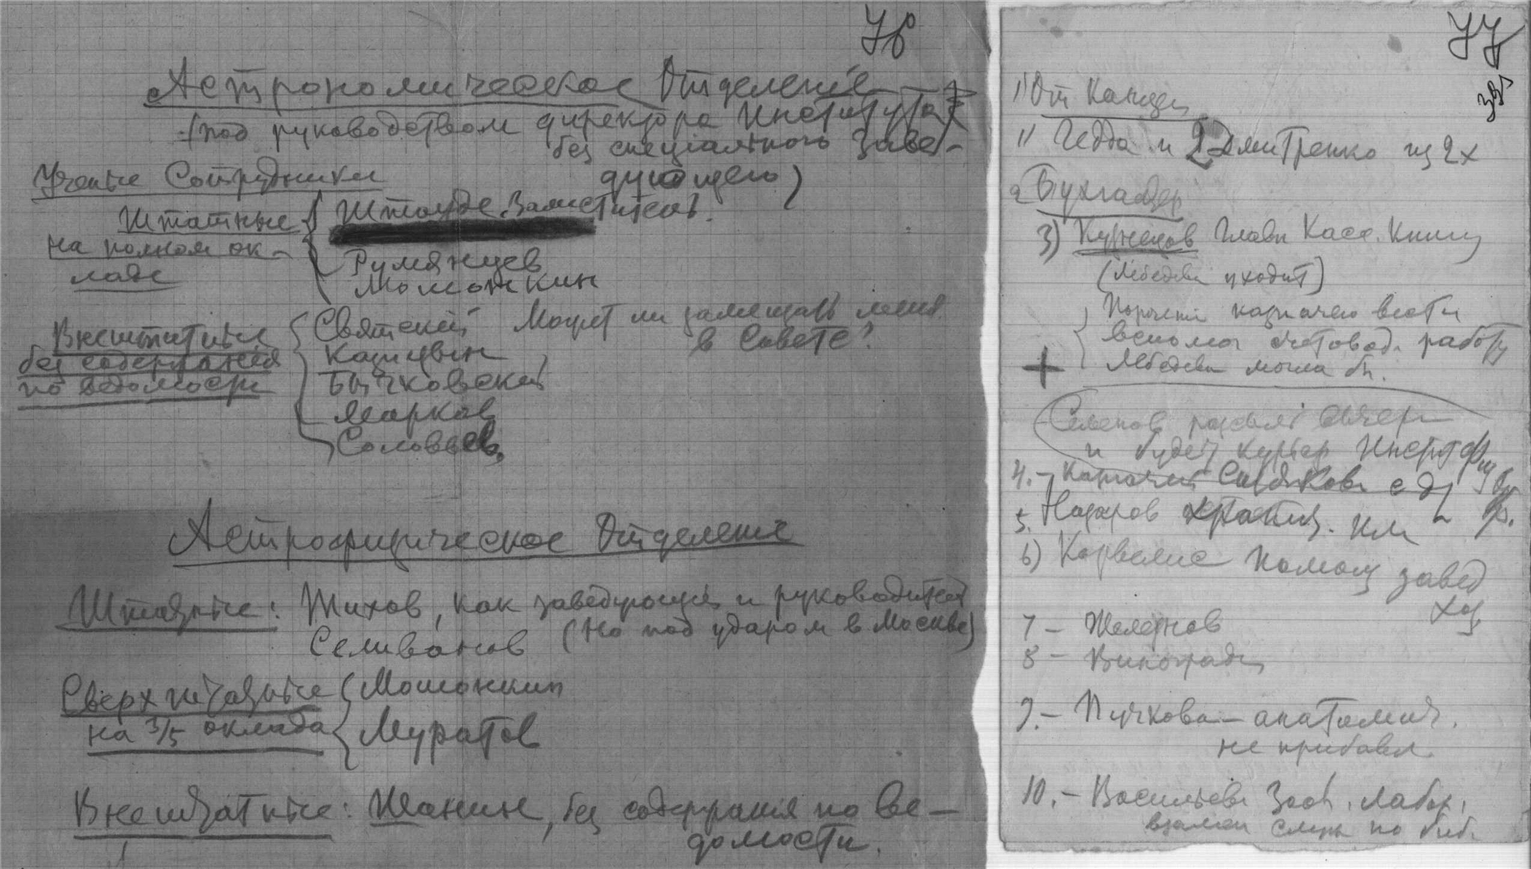 76
Астрономическое Отделение
(под руководством директора Института
без специального заве-
дующего)
Ученые Сотрудники
Штатные
на полном ок-
ладе
Штауде Заместитель.
Румянцев
Момошкин
Внештатные
без содержания
по ведомости
Святский Может ли замещать меня
в Совете?
Казицын
Бычковский
Марков
Соловьев.
Астрофизическое Отделение
Штатные: Тихов, как заведующий и руководитель
Селиванов (но под ударом в Москве)
Сверхштатные
на 3/5 оклада
Мошонкин
Муратов
Внештатные: Шанин, без содержания по ве-
домости.
77
1) От Канцел
1) Гедда и 2 Дмитренко из 2х
2 Бухгалтер
3) Кузнецов Главн Касс. Книгу
(Лебедева уходит)
Поручить казначею вести
вспомог счетовод. работу
Лебедева могла б.
Семенов
и будет курьер Инст
4. -
5. Назаров
6) Корвелис помощ завед
хоз
7 - Железнов
8 - Виноградов
9. - Пучкова - анатомич.
не прибавл
10. - Васильева Зооб. лабор.
по биб.